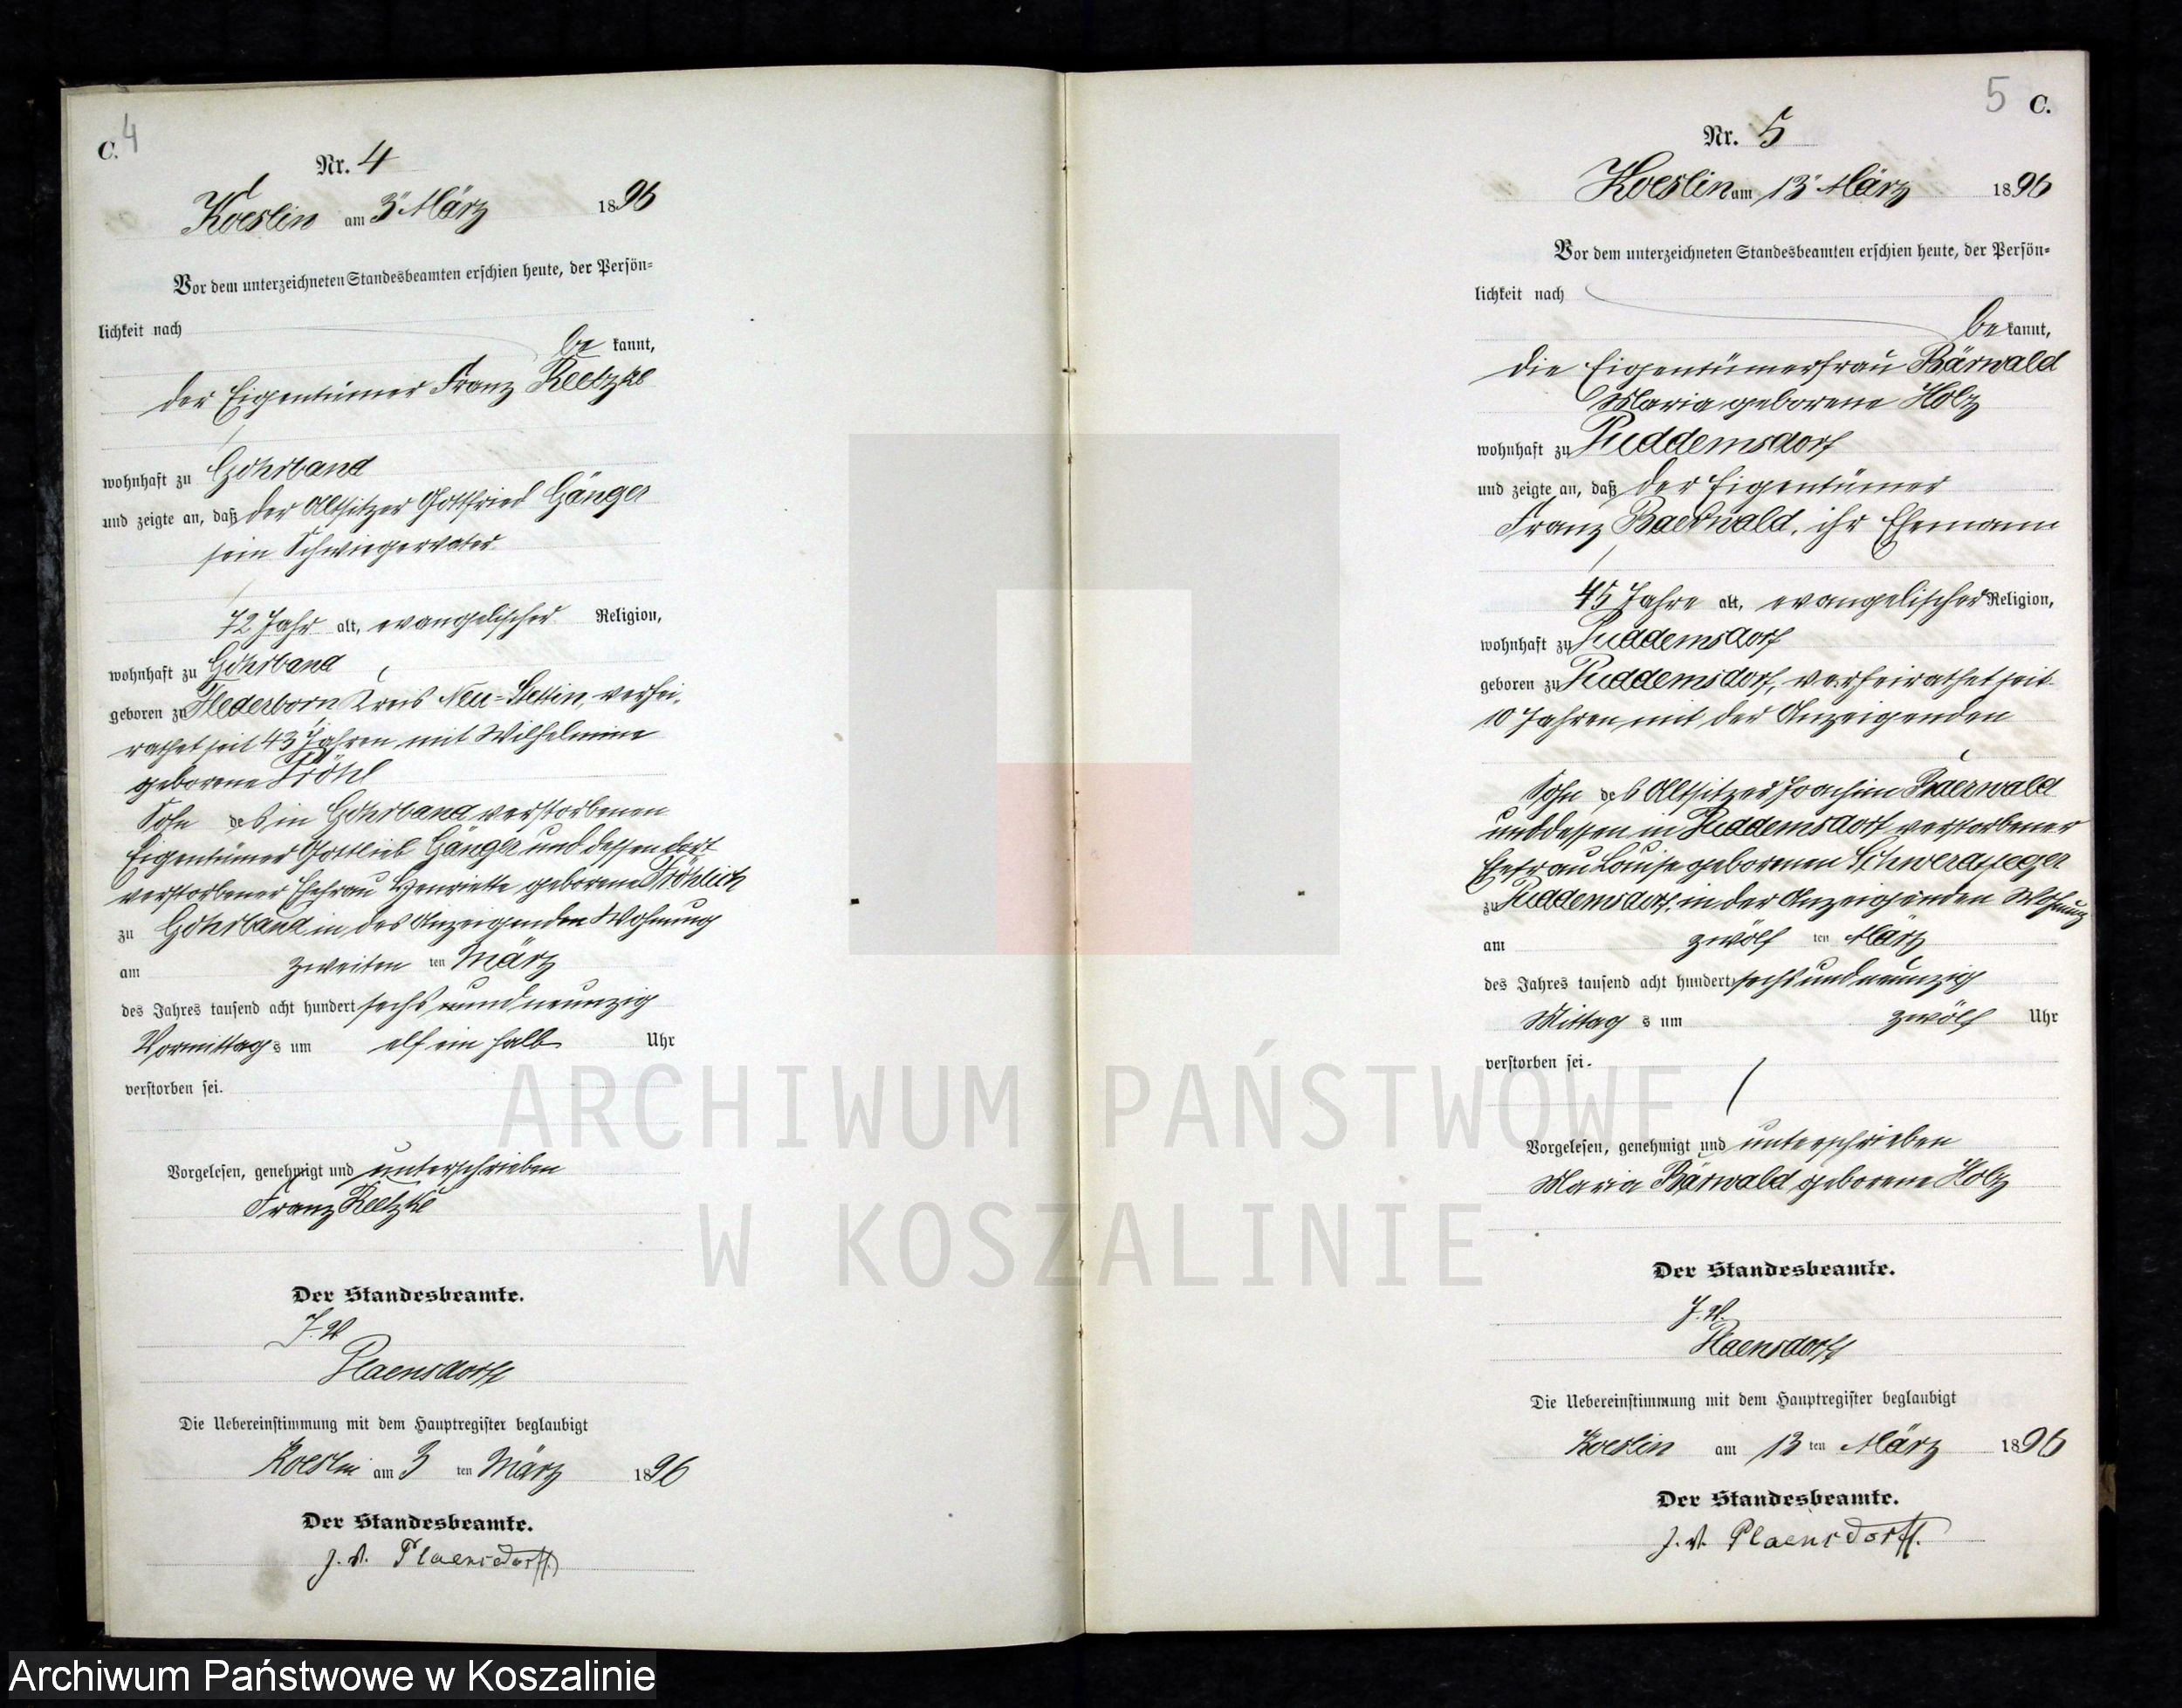 C. 4
Nr. 4
Koeslin am 3ᵗ März 1896
Vor dem unterzeichneten Standesbeamten erschien heute, der Persön-
lichkeit nach
be kannt,
der Eigentümer Franz Reetzke
wohnhaft zu Gohrband
und zeigte an, daß der Altsitzer Gottfried Gänger
sein Schwiegervater
72 Jahr alt, evangelischer Religion,
wohnhaft zu Gohrband
geboren zu Flederborn Kreis Neu-Stettin, verhei-
rathet seit 43 Jahren mit Wilhelmine
geborene
Sohn des in Gohrband verstorbenen
Eigentümer Gottlieb Gänger und dessen dort
verstorbener Ehefrau Henriette geborene Fröhlich
zu Gohrband in des Anzeigenden Wohnung
am zweiten ten März
des Jahres tausend acht hundert sechs und neunzig
Vormittag s um elf ein halb Uhr
verstorben sei.
Vorgelesen, genehmigt und unterschrieben
Franz Reetzke
Der Standesbeamte.
J. V.
Plaensdorff
Die Uebereinstimmung mit dem Hauptregister beglaubigt
Koeslin am 3 ten März 1896
Der Standesbeamte.
J. V. Plaensdorff.
5 C.
Nr. 5
Koeslin am 13ᵗ März 1896
Vor dem unterzeichneten Standesbeamten erschien heute, der Persön-
lichkeit nach
be kannt,
die Eigentümerfrau Bärwald
Maria geborene Holz
wohnhaft zu Puddemsdorf
und zeigte an, daß der Eigentümer
Franz Baerwald, ihr Ehemann
45 Jahre alt, evangelischer Religion,
wohnhaft zu Puddemsdorf
geboren zu Puddemsdorf, verheirathet seit
10 Jahren mit der Anzeigenden
Sohn des Altsitzer Joachim Baerwald
und dessen in Puddemsdorf verstorbener
Ehefrau Louise geborenen
zu Puddemsdorf, in der Anzeigenden Wohnung
am zwölf ten März
des Jahres tausend acht hundert sechs und neunzig
Mittag s um zwölf Uhr
verstorben sei.
Vorgelesen, genehmigt und unterschrieben
Maria Bärwald geborene Holz
Der Standesbeamte.
J. V.
Plaensdorff
Die Uebereinstimmung mit dem Hauptregister beglaubigt
Koeslin am 13 ten März 1896
Der Standesbeamte.
J. V. Plaensdorff.
ARCHIWUM PAŃSTWOWE
W KOSZALINIE
Archiwum Państwowe w Koszalinie